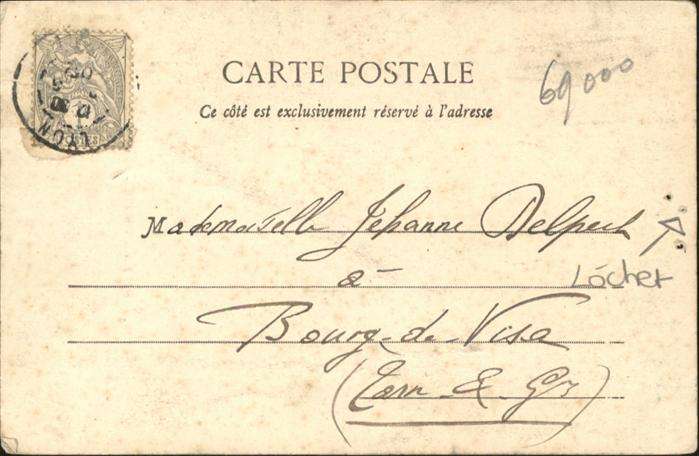 CARTE POSTALE
Ce côté est exclusivement réservé à l'adresse
69000
LYON
Mademoiselle Jehanne Delpech
à
Lâcher
Bourg-de-Visa
(Tarn & Gne)